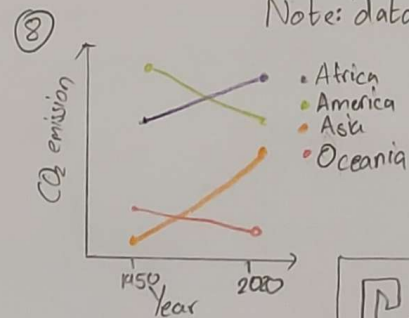 Note: data
8
CO₂ emission
Africa
America
Asia
Oceania
1950
2020
Year